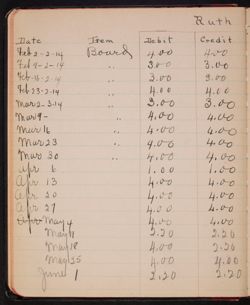 Ruth
Date Item Debit Credit
Feb 2-2-14 Board 4.00 4.00
Feb 9-2-14 " 3.00 3.00
Feb 16-2-14 " 3.00 3.00
Feb 23-2-14 " 4.00 4.00
Mar 2-3-14 " 3.00 3.00
Mar 9- " 4.00 4.00
Mar 16 " 4.00 4.00
Mar 23 " 4.00 4.00
Mar 30 " 4.00 4.00
Apr 6 1.00 1.00
Apr 13 4.00 4.00
Apr 20 4.00 4.00
Apr 27 4.00 4.00
May 4 4.00 4.00
May 11 2.20 2.20
May 18 4.00 2.20
May 25 4.00 4.00
June 1 2.20 2.20